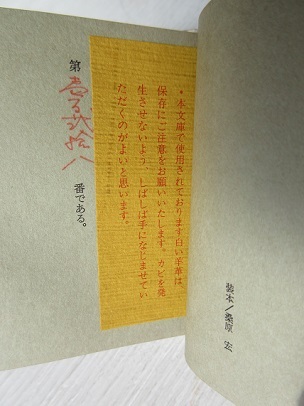 装本／桑原 宏
・本文庫で使用されております白い羊革は、
保存にご注意をお願いいたします。カビを発
生させないよう、しばしば手になじませてい
ただくのがよいと思います。
第壱百弐拾八番である。